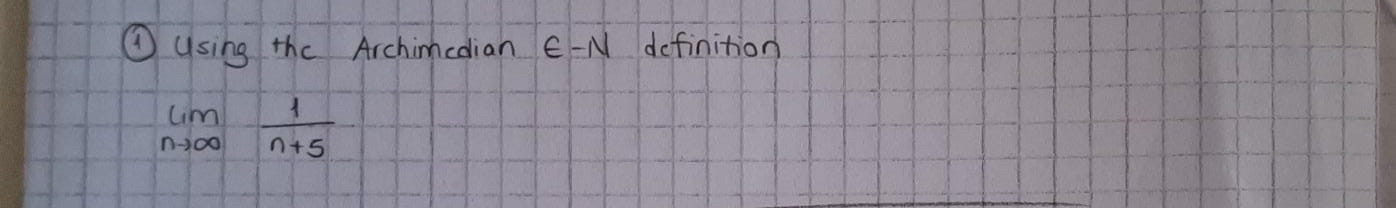 ① Using the Archimedian ∈-N definition
lim 1
n→∞ n+5